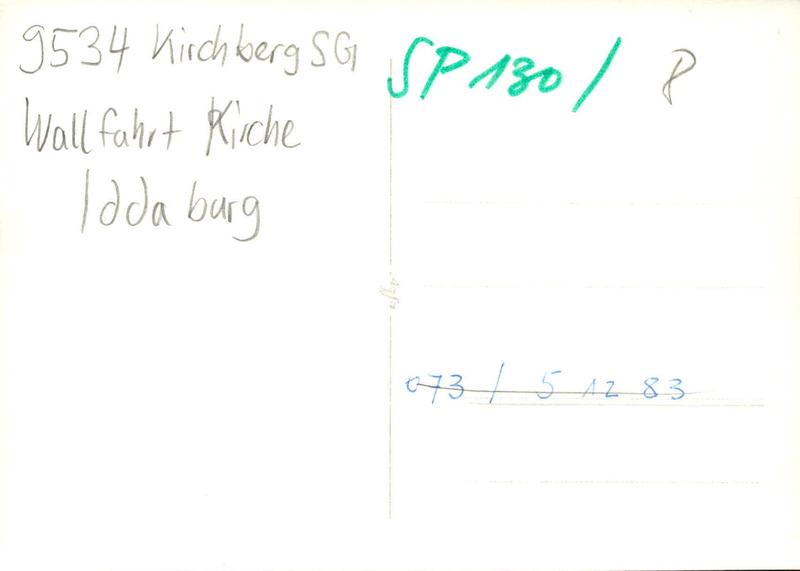 9534 Kirchberg SG
Wallfahrt Kirche
Idda burg
SP 130 / P
073 / 5 12 83